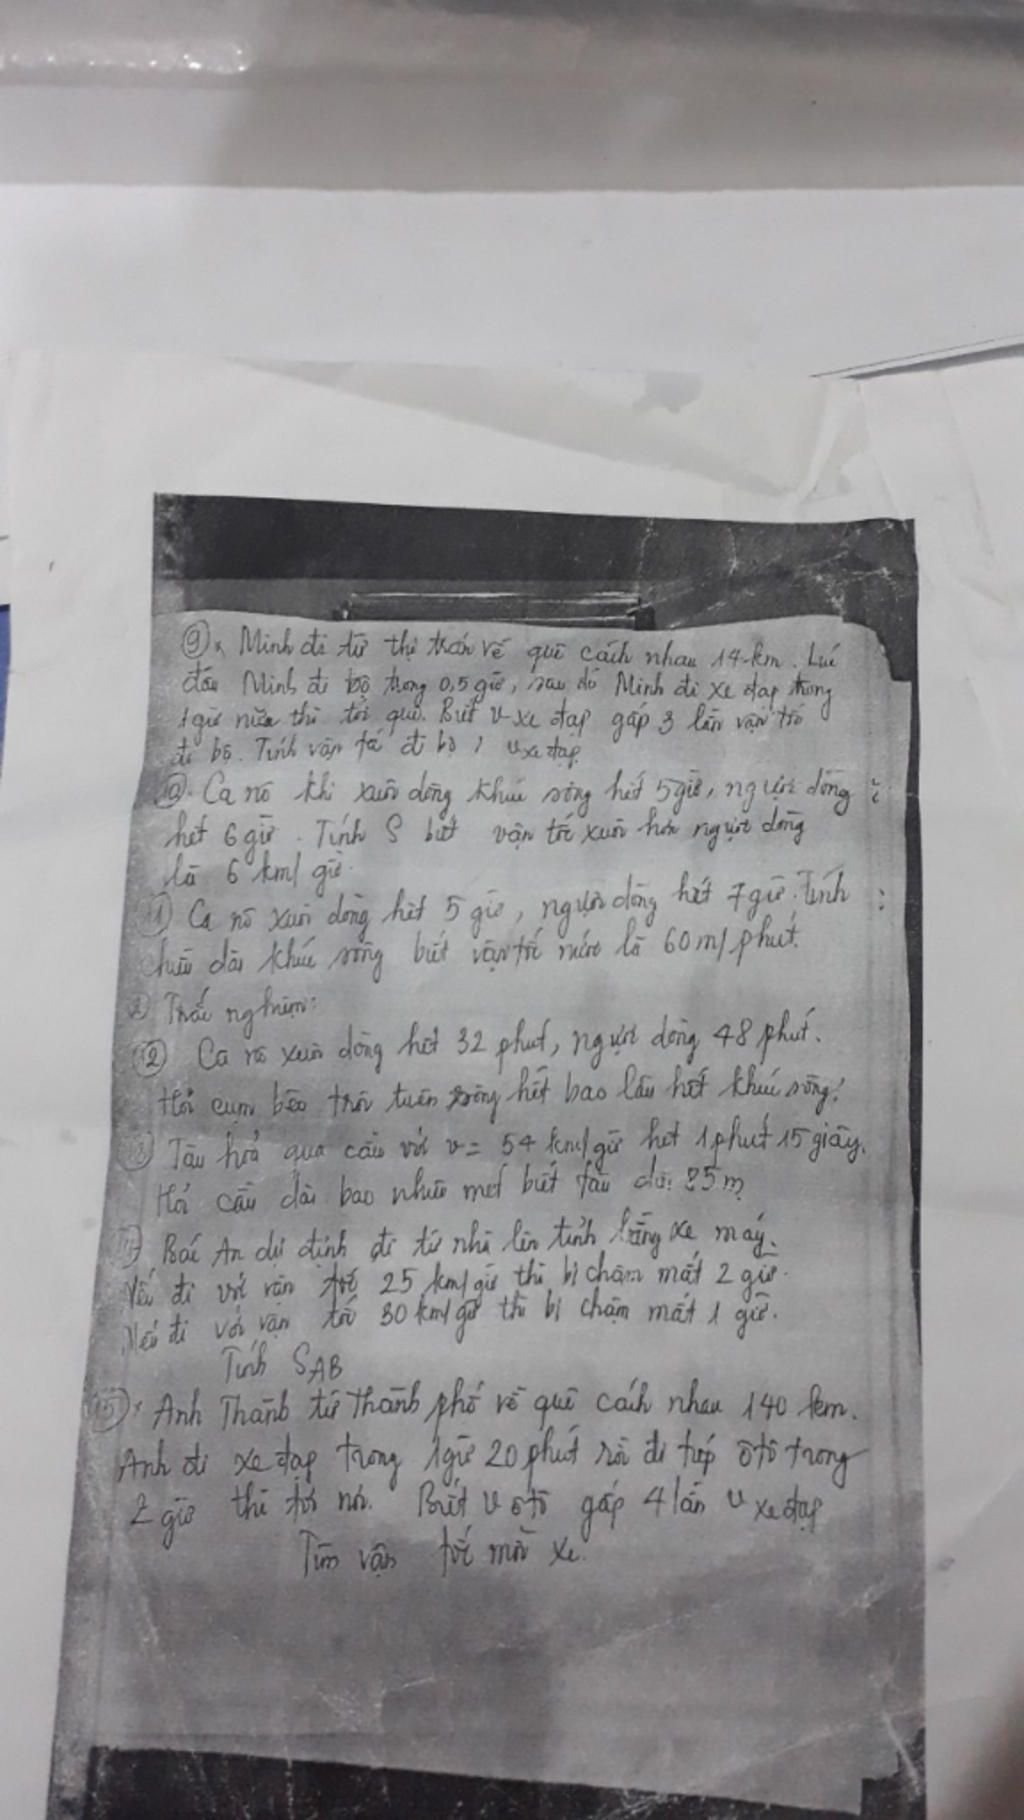 ⑨ x Minh đi từ thị trấn về quê cách nhau 14 km. Lúc
đầu Minh đi bộ trong 0,5 giờ, sau đó Minh đi xe đạp trong
1 giờ nữa thì tới quê. Biết v xe đạp gấp 3 lần vận tốc
đi bộ. Tính vận tốc đi bộ, v xe đạp.
⑩. Ca nô khi xuôi dòng khúc sông hết 5 giờ, ngược dòng
hết 6 giờ. Tính S biết vận tốc xuôi hơn ngược dòng
là 6 km/giờ.
11) Ca nô xuôi dòng hết 5 giờ, ngược dòng hết 7 giờ. Tính
chiều dài khúc sông biết vận tốc nước là 60 m/phút.
Trắc nghiệm:
⑫ Ca nô xuôi dòng hết 32 phút, ngược dòng 48 phút.
Hỏi cụm bèo trôi sông hết bao lâu hết khúc sông?
Tàu hoả qua cầu với v = 54 km/giờ hết 1 phút 15 giây.
Hỏi cầu dài bao nhiêu mét biết tàu dài 85m
Bác An dự định đi từ nhà lên tỉnh bằng xe máy.
Nếu đi với vận tốc 25 km/giờ thì bị chậm mất 2 giờ.
Nếu đi với vận tốc 30 km/giờ thì bị chậm mất 1 giờ.
Tính SAB
⑮ x Anh Thành từ thành phố về quê cách nhau 140 km.
Anh đi xe đạp trong 1 giờ 20 phút rồi đi tiếp ôtô trong
2 giờ thì tới nơi. Biết v ôtô gấp 4 lần v xe đạp
Tìm vận tốc mỗi xe.